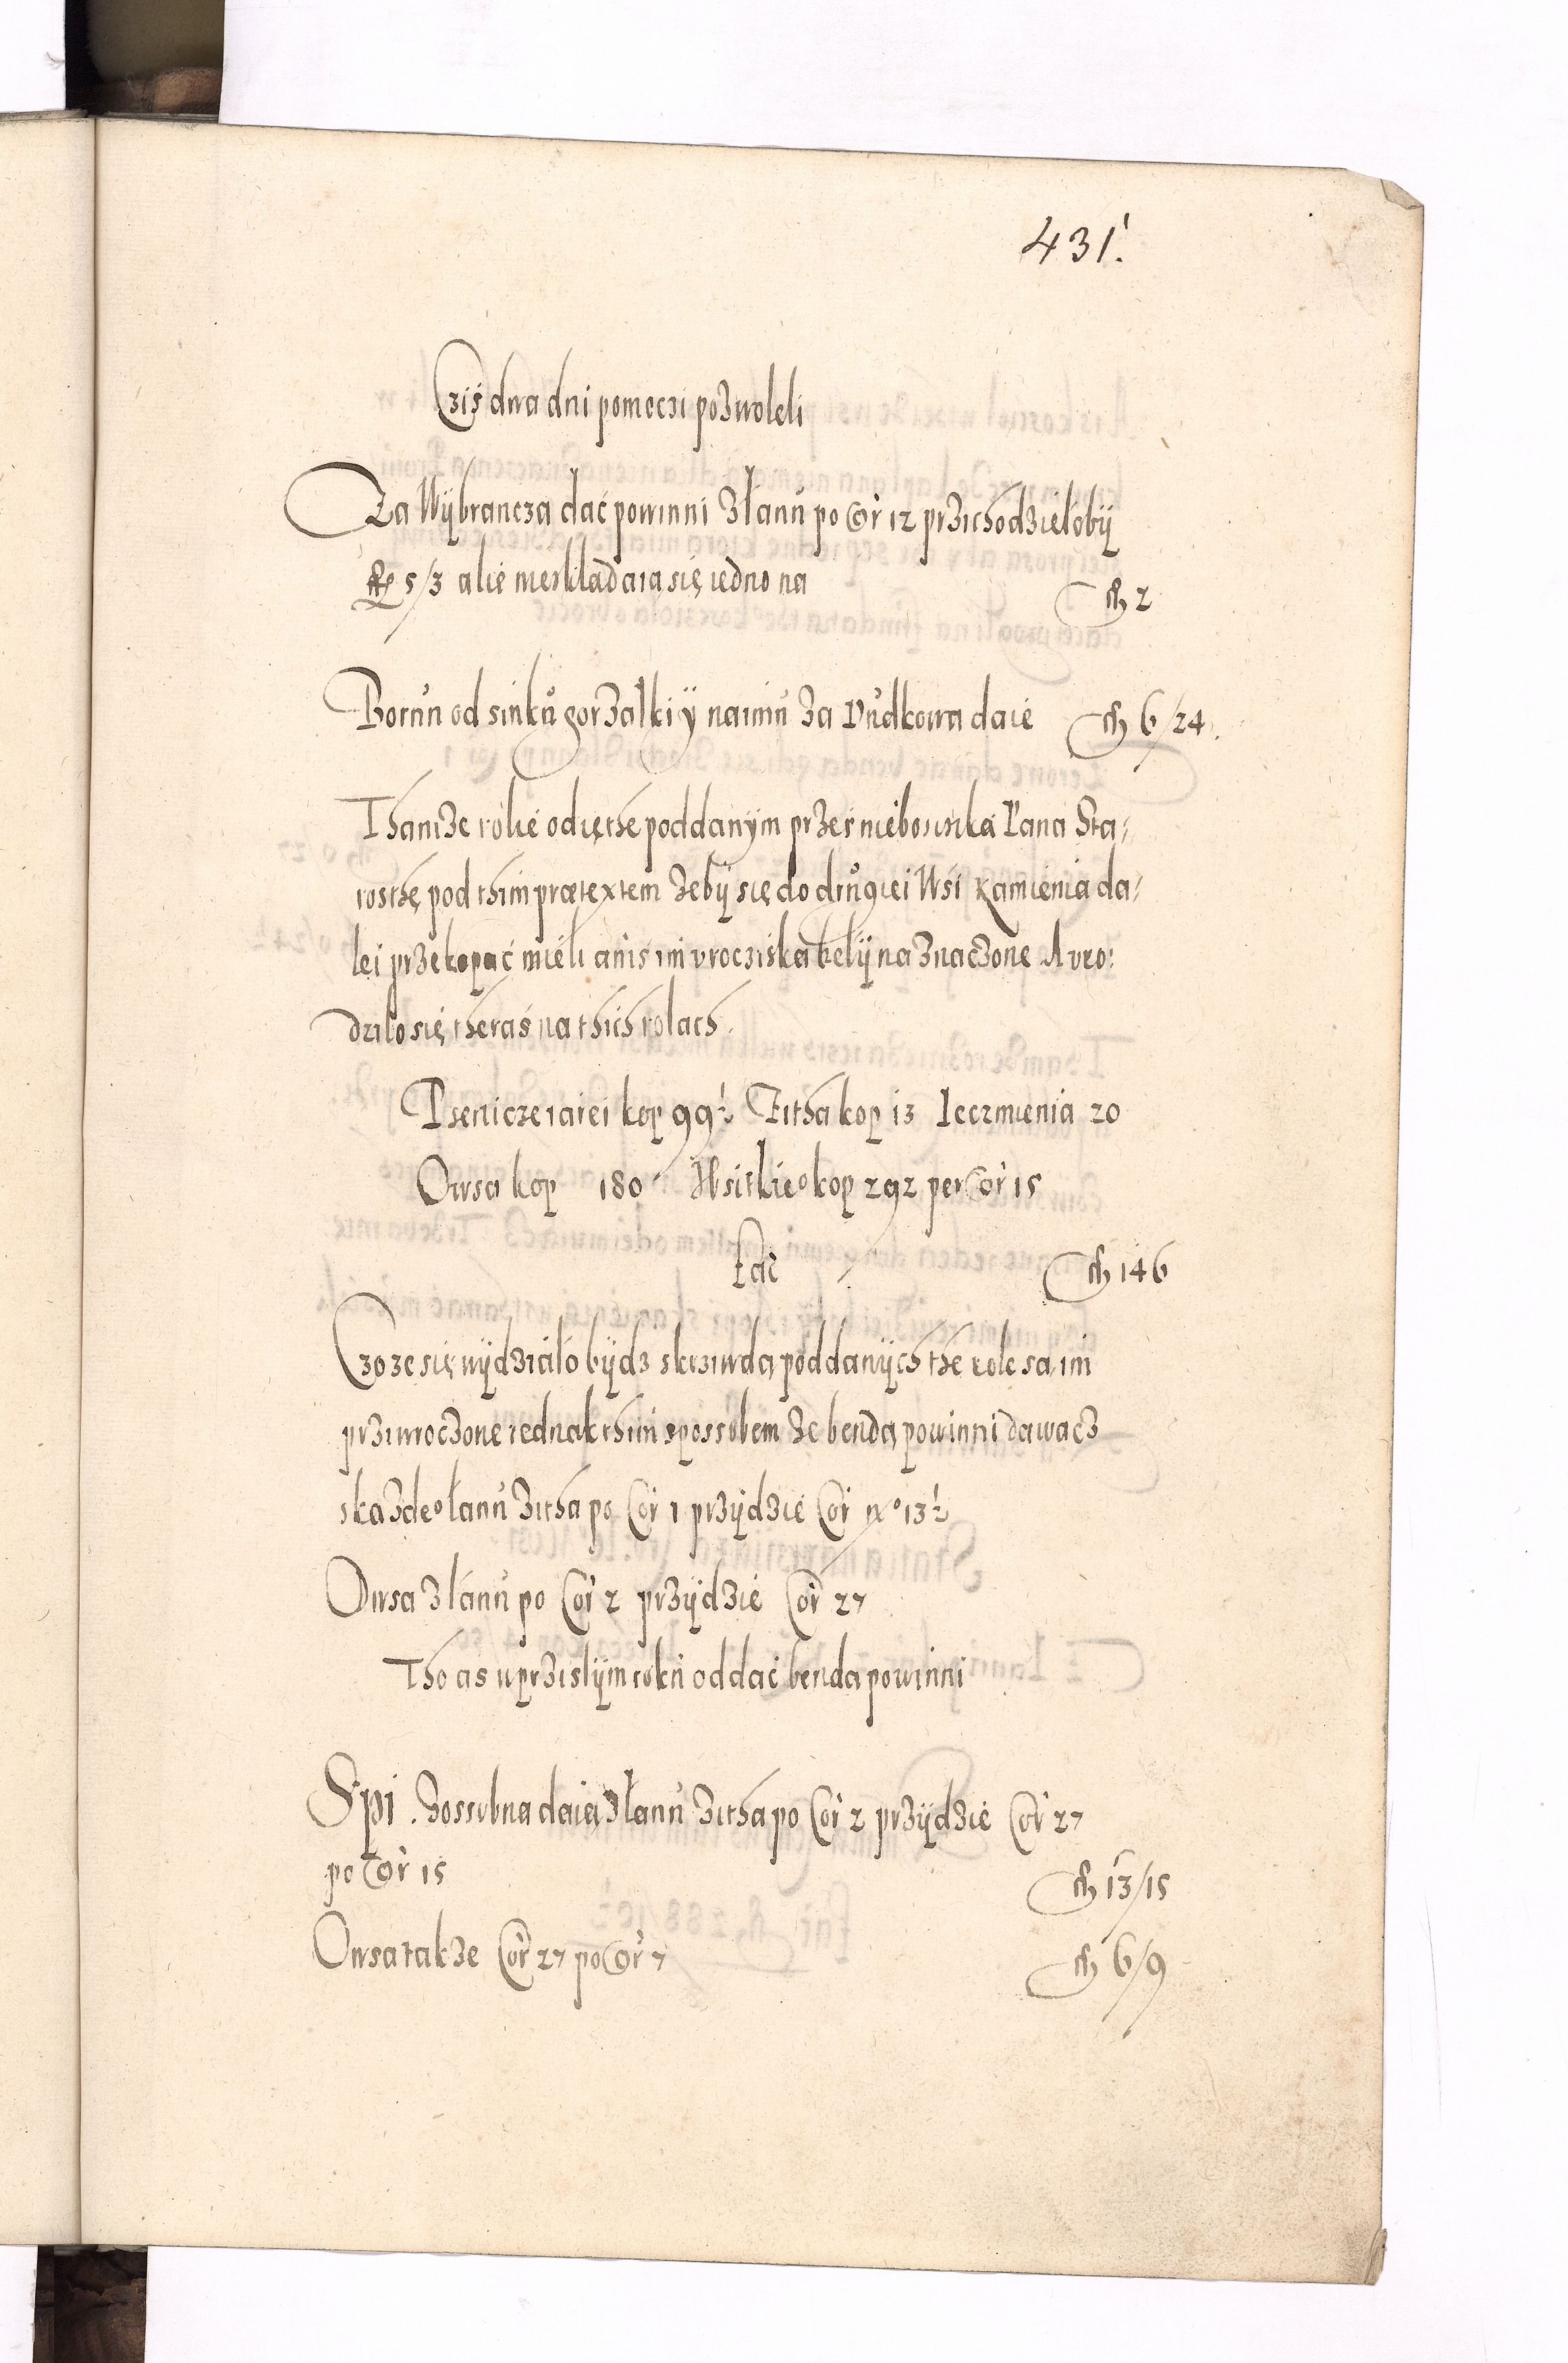 431.
Czis dwa dni pomoczi pozwoleli
Za Wÿbrancza dać powinni złanu po Gr 12 przichodziełobÿ
fl 5/3 alie nieskładaia się iedno na fl 2
Borun od sinku gorzałki ÿ naimu za Dudkowa daie fl 6/24.
Thamze rolie odięthe poddanÿm przes niebosczika Pana Sta-
rosthę pod thim prætextem żebÿ się do drugiei Wsi Kamienia da-
lei przekopać mieli anis im vrocziska belÿ naznaczone A vro-
dziło się theras na thich rolach.
Pseniczeiarei kop 99½ Zitha kop 13 Ieczmienia 20
Owsa kop 180 Wsitkie° kop 292 per Gr 15
Fac fl 146
Czo ze się wÿdziało bÿdz skrziwdą poddanÿch the role są im
prziwroczone iednak thim spossobem ze bendą powinni dawacz
skazde° łanu zitha po Cor 1 przÿdzie Cor n° 13½
Owsa złanu po Cor 2 przÿdzie Cor 27
Tho as w prziszlÿm roku oddać benda powinni
Spi. Zossobna daią złanu zitha po Cor 2 przÿdzie Cor 27
po Gr 15 fl 13/15
Owsa takze Cor 27 po Gr 7 fl 6/9